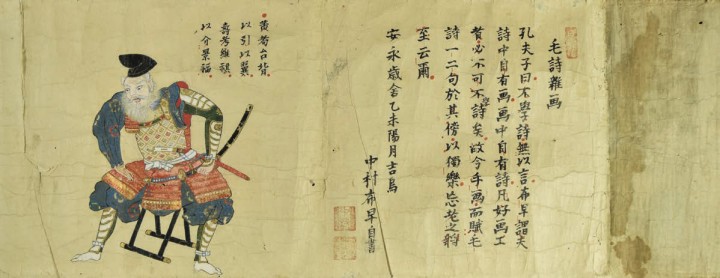 毛詩雜画
孔夫子曰不學詩無以言希早謂夫
詩中自有画画中自有詩凡好画工
賛必不可不學詩矣故今手画而賦毛
詩一二句於其傍以獨樂忘老之將
至云爾
安永歳舎乙未陽月吉烏
中村希早自書
黄耇台背
以引以翼
壽考維祺
以介景福